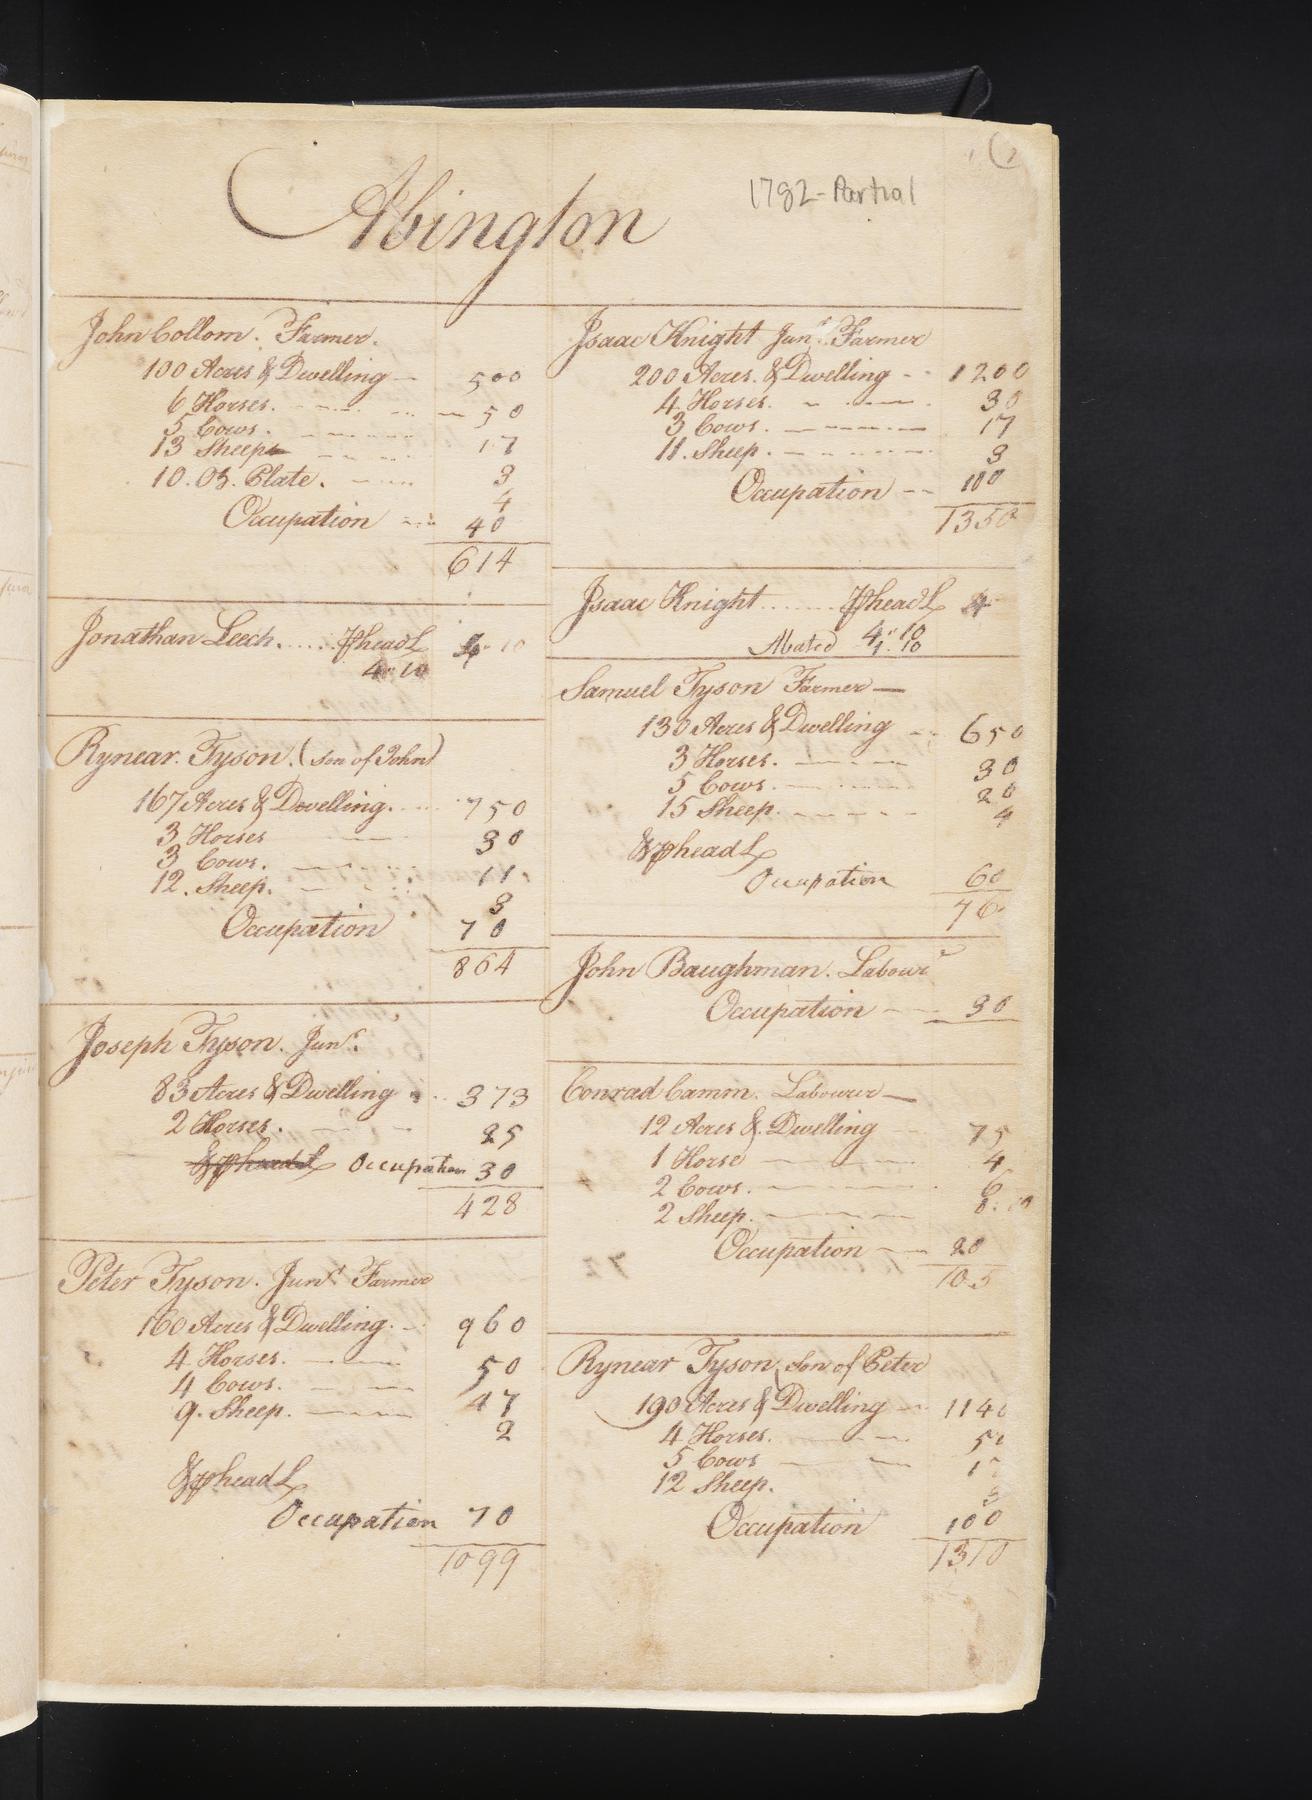 Abington
1782 - Partial
John Collom. Farmer.
100 Acres & Dwelling 500
6 Horses. 50
5 Cows. 17
13 Sheep 3
10. Oz. Plate. 4
Occupation 40
614
Jonathan Leech. head
4" 10
Rynear Tyson. (son of John)
167 Acres & Dwelling. 750
3 Horses 30
3 Cows. 11
12. Sheep. 3
Occupation 70
864
Joseph Tyson. Junr.
83 Acres & Dwelling 373
2 Horses. 25
Occupation 30
428
Peter Tyson. Junr. Farmer
160 Acres & Dwelling. 960
4 Horses. 50
4 Cows. 17
9. Sheep. 2
& head
Occupation 70
1099
Isaac Knight Junr. Farmer
200 Acres. & Dwelling 1200
4 Horses. 30
3 Cows. 17
11. Sheep. 3
Occupation 100
1350
Isaac Knight head
4" 10
Abated 4" 10
Samuel Tyson Farmer
130 Acres & Dwelling 650
3 Horses. 30
5 Cows. 20
15 Sheep. 4
& head
Occupation 60
76
John Baughman. Labourr
Occupation 30
Conrad Camm. Labourer
12 Acres & Dwelling 75
1 Horse 4
2 Cows. 6
2 Sheep.
Occupation 20
105
Rynear Tyson son of Peter
190 Acres & Dwelling 114
4 Horses. 5
5 Cows 1
12 Sheep. 3
Occupation 100
1310